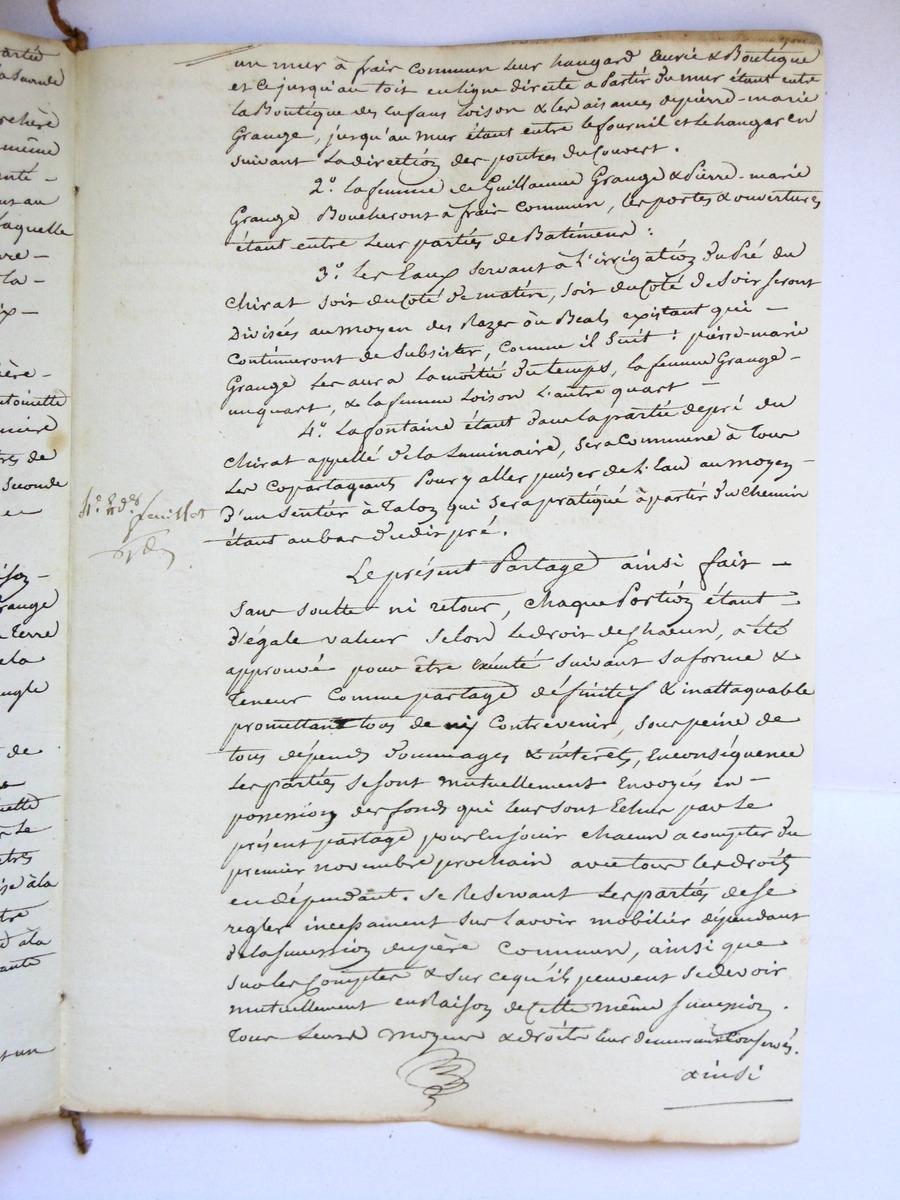 un mur à frair Commun leur hangard Eurié & Boutique
et Ce jusqu'au toit en ligne directe a Partir du mur étant entre
la Boutique des enfans Loison & les aisances de pierre-marie
Grange, jusqu'au mur étant entre le fournil et le hangar en
suivant La direction des poutres du Couvert.
2.º la femme de Guillaume Grange & Pierre-marie
Grange Boucheront à frair Commun, les portes & ouvertures
étant entre Leur parties de Batimens:
3.º Les Eaux servant à L'irrigation du Pré du
Chirat soit du Coté de matin, soit du Coté de Soir seront
Divisées au moyen des Razes ou Beals existant qui –
Continueront de Subsister, Comme il Suit: pierre-marie
Grange Les aura La moitié du temps, la femme Grange –
un quart, & la femme Loison L'autre quart –
4.º La fontaine étant dans la partie de pré du
Chirat appellé de la Luminaire, sera Commune à tous
Les Copartageants Pour y aller puiser de L'Eau au moyen –
d'un Sentier à talon qui sera pratiqué à partir du Chemin
étant au bas du dit pré.
feuillet
Le présent Partage ainsi fait –
Sans soulte ni retour, Chaque Portion étant –
d'égale valeur selon Le droit de Chacun, a été
approuvé pour être Exécuté suivant sa forme &
teneur Comme partage définitif & inattaquable
promettant tous de ny Contrevenir, sous peine de
tous dépends dommages & intérets, En conséquence
Les parties se sont mutuellement Envoyés en –
possession des fonds qui leur sont Echus par Le
présent partage pour En jouir chacun a compter du
premier novembre prochain avec tous les droits
en dépendant. Se Reservant Les parties de se
regler incessament sur l'avoir mobilier dépendant
de la succession du père Commun, ainsi que
sur les Comptes & sur ce qu'ils peuvent se devoir
mutuellement en Raison de Cette même succession.
tous Leurs moyens & droits leur demeurant Conservés.
ainsi